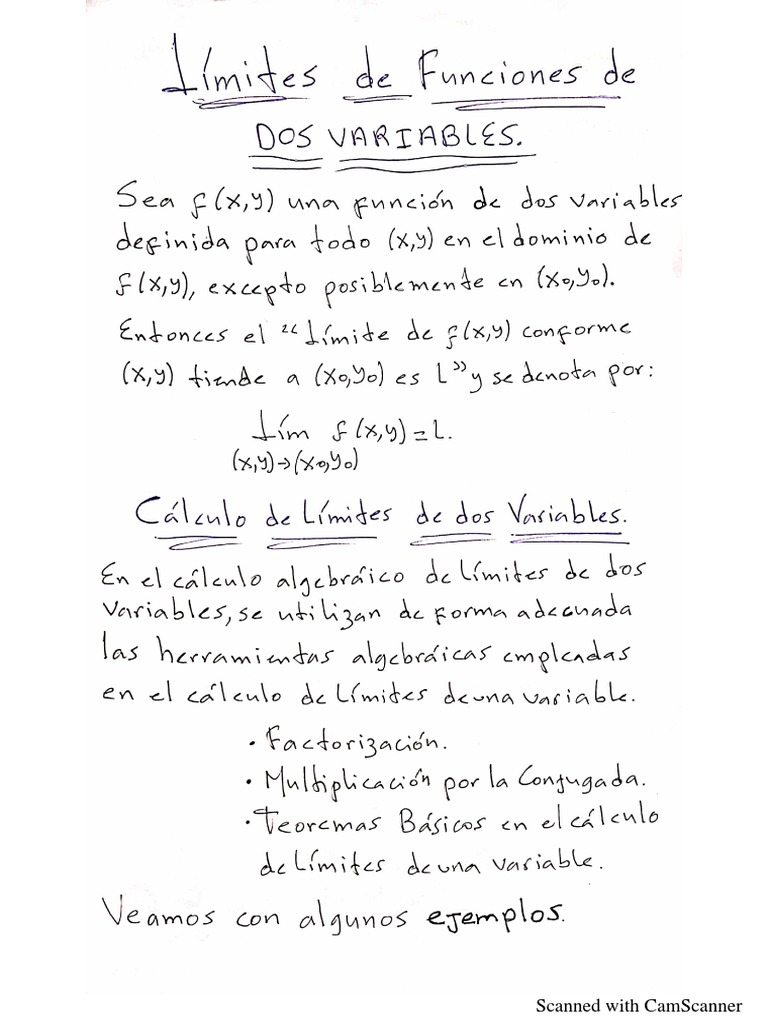 Límites de Funciones de
DOS VARIABLES.
Sea f(x,y) una función de dos variables
definida para todo (x,y) en el dominio de
f(x,y), excepto posiblemente en (x₀,y₀).
Entonces el “Límite de f(x,y) conforme
(x,y) tiende a (x₀,y₀) es L” y se denota por:
Lím f(x,y)=L.
(x,y)→(x₀,y₀)
Cálculo de Límites de dos Variables.
En el cálculo algebráico de Límites de dos
variables, se utilizan de forma adecuada
las herramientas algebráicas empleadas
en el cálculo de Límites de una variable.
• Factorización.
• Multiplicación por la Conjugada.
• Teoremas Básicos en el cálculo
de Límites de una variable.
Veamos con algunos ejemplos.
Scanned with CamScanner